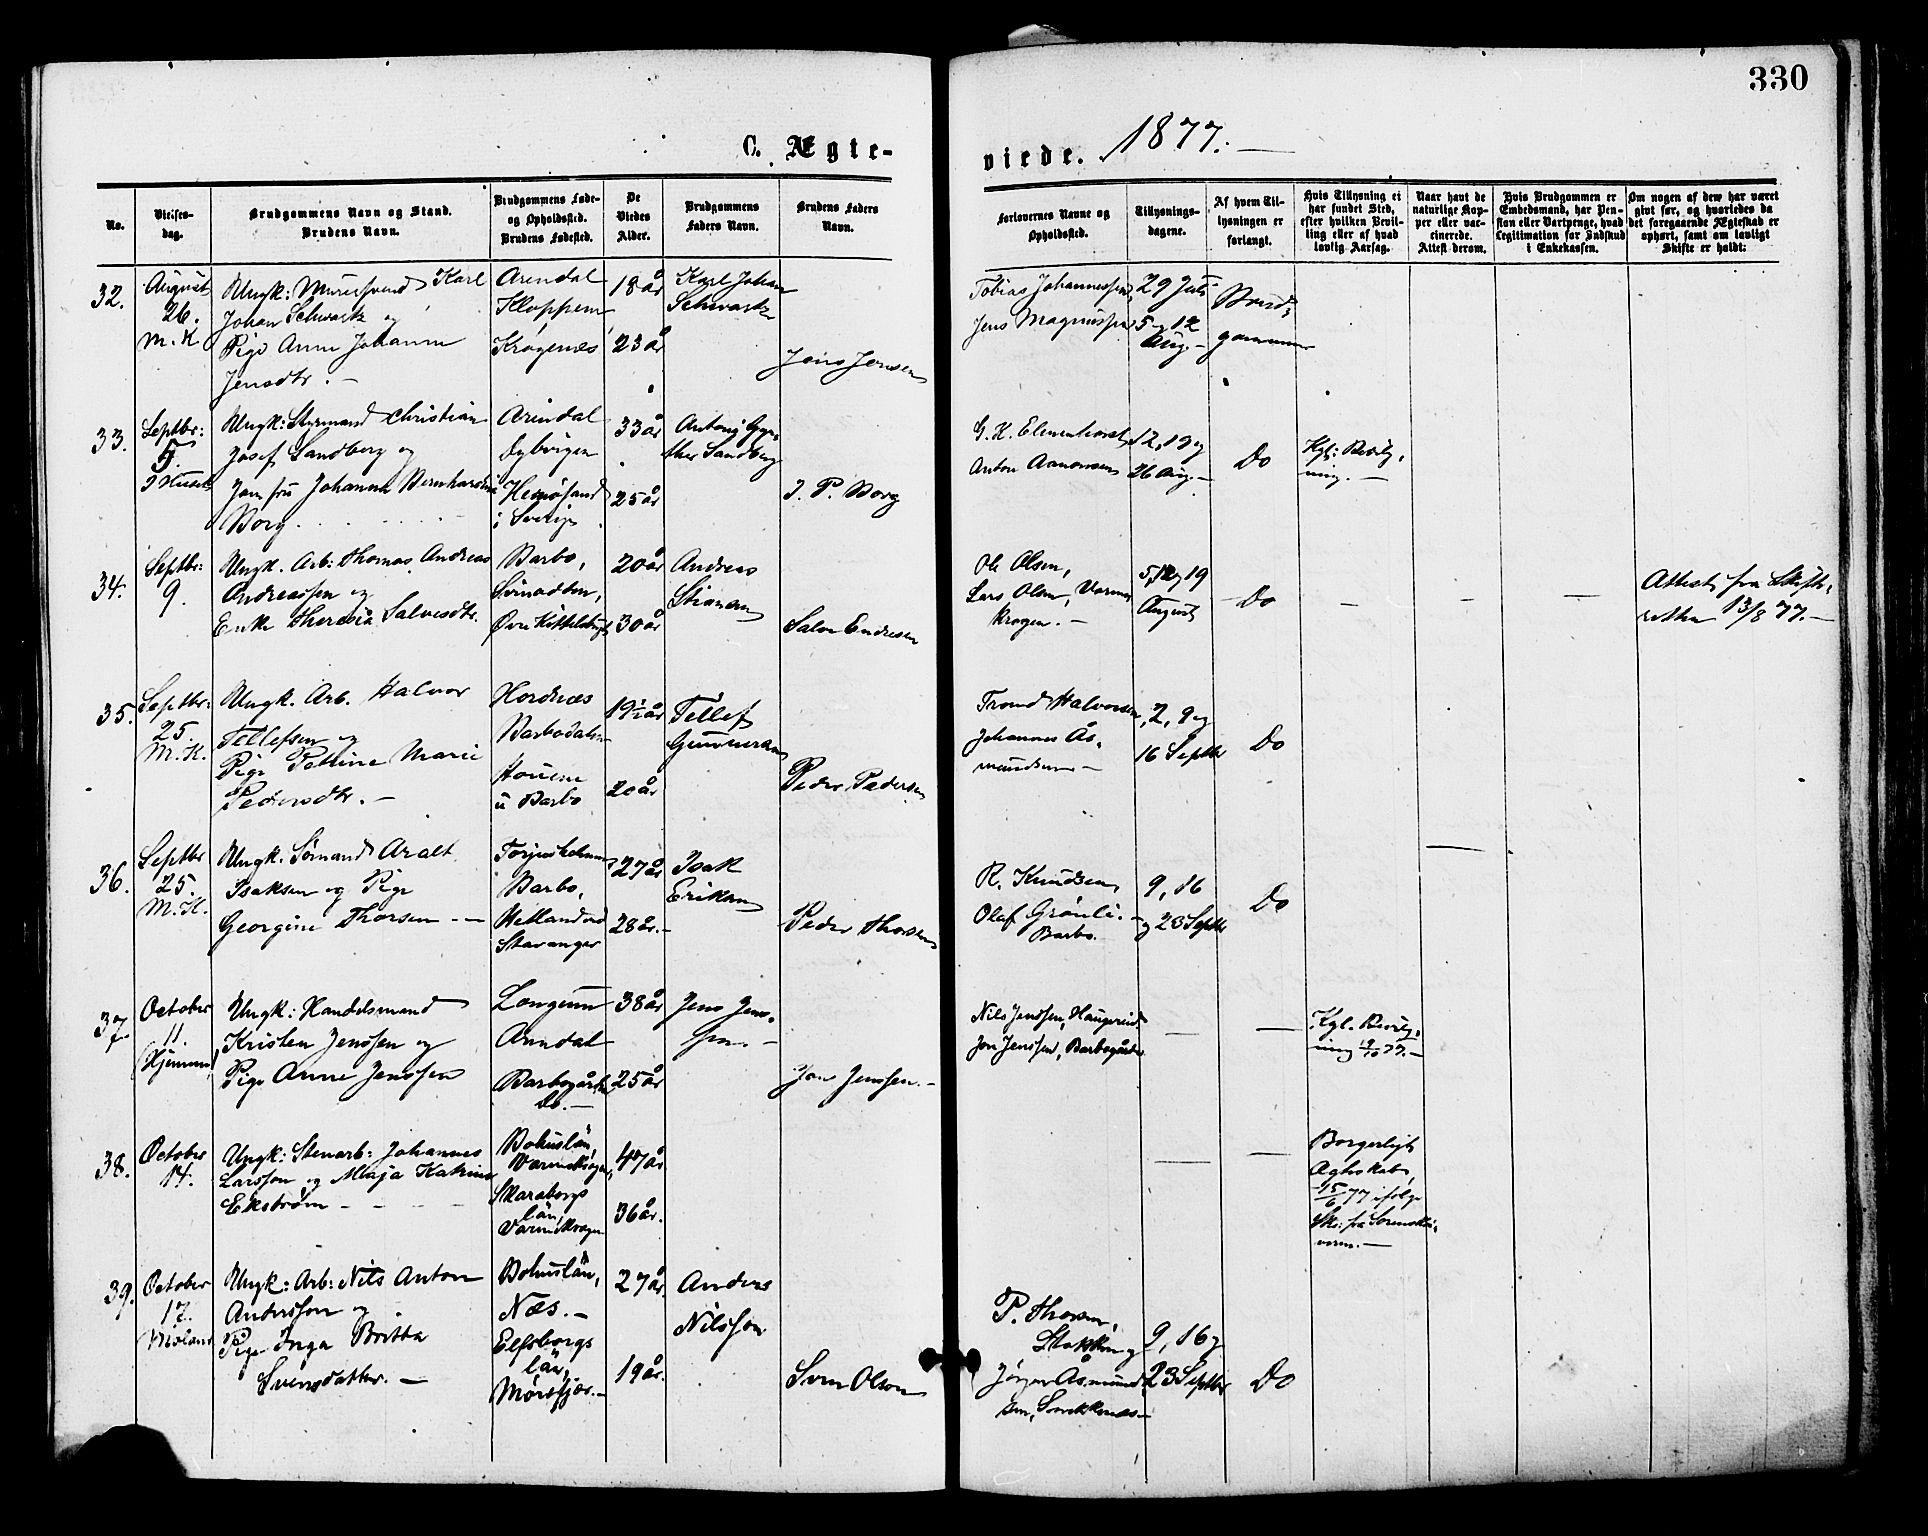 330
C. Ægte-
viede. 1877.
No.
Vielses-
dag.
Brudgommens Navn og Stand.
Brudens Navn.
Brudgommens Føde-
og Opholdssted.
Brudens Fødested.
De
Viedes
Alder.
Brudgommens
Faders Navn.
Brudens Faders
Navn.
Forlovernes Navne og
Opholdssted.
Tillysnings-
dagene.
Af hvem Til-
lysningen er
forlangt.
Hvis Tillysning ei
har fundet Sted,
efter hvilken Bevil-
ling eller af hvad
lovlig Aarsag.
Naar havt de
naturlige Kop-
per eller vac-
cinerede.
Attest derom.
Hvis Brudgommen er
Embedsmand, har Pen-
sion eller Vartpenge, hvad
Legitimation for Indskud
i Enkekassen.
Om nogen af dem har været
gift før, og hvorledes da
det foregaaende Ægteskab er
ophørt, samt om lovligt
Skifte er holdt:
32.
August
26.
M. K
Ungk: Murersvend Karl
Johan Schwartz og
Pige Anne Johanne
Jensdtr. -
Arendal
Kloppene
Krøgenæs
18 år
23 år
Karl Johan
Schwartz
Jens Jensen
Tobias Johannessen
Jens Magnussen
29 Juli
5 og 12
Aug. -
Brud-
gommen
33.
Septbr:
5.
I Huset
Ungk: Styrmand Christian
Josef Sandberg og
Jomfru Johanna Bernhardina
Borg
Arendal
Dybvigen
Hernösand
i Sverige
33 år
25 år
Antonj Gyn-
ther Sandberg
J. P. Borg
Anton Aanonsen
12, 19 og
26 Aug. -
Do
Kgl: Bevilg-
ning. -
34.
Septbr:
9.
Ungk. Arb: Thomas Andreas
Andreassen og
Enke Theresia Salvesdtr.
Barbo,
Øvre Kittelsbugt
20 år
30 år
Andreas
Salve Endresen
Ole Olsen,
Lars Olsen,
krogen. -
5, 12 og 19
August
- Do
Attest fra Skifte-
retten 13/8 77. -
35.
Septbr:
25.
M. K.
Ungk. Arb. Halvor
Tellefsen og
Pige Petrine Marie
Pedersdtr. -
Hordnæs
Barbodalen
Houene
i Barbo
19½ år
20 år
Tellef
Gunnersen
Peder Pedersen
Trond Halvorsen
Johannes Ås-
mundsen -
2, 9 og
16 Septbr
Do
36.
Septbr
25.
M. K.
Ungk. Sømand Aralt
Isaksen og Pige
Georgine Thorsen -
Torjusholmen
Barbo,
Hetlandsed
Stavanger
27 år
28 år. -
Isak
Eriksen
Peder Thorsen
R. Knudsen,
Olaf Grönli. -
Barbo.
9, 16
og 23 Septbr
Do
37.
October
11.
(Hjemme)
Ungk: Handelsmand
Kristen Jenssen og
Pige Anne Jenssen
Langsum
Arendal
Barbogården
Do. -
38 år
25 år
Jens Jens-
sen. -
Jon Jenssen. -
Nils Jenssen, Haugereid
Jon Jenssen, Barbogården
Kgl. Bevilg-
ning 9/10 77. -
38.
October
14.
Ungk: Stenarb: Johannes
Larsson og Maja Katrina
Ekström
Bohuslän,
Varmekrogen,
Skaraborgs
län,
Varmekrogen
47 år
36 år.
Borgerligt
Ægteskab,
15/6 77 ifølge
39.
October
17.
Moland
Ungk: Arb: Nils Anton
Andersson og
Pige Inga Britta
Svensdatter. -
Bohuslän,
Næs. -
Elfsborgs
län,
27 år.
19 år.
Anders
Nilsson
Sven Olson
P. Thorsen,
Stokken og
Jørgen Åsmund-
sen,
9, 16 og
23 Septbr
Do